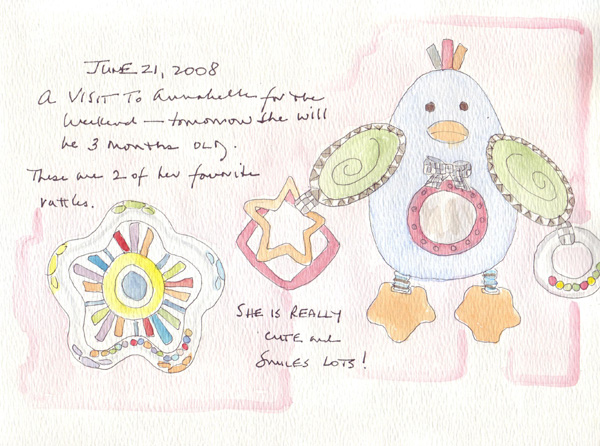 JUNE 21, 2008
A VISIT TO Annabelle for the
weekend — tomorrow she will
be 3 months OLD.
These are 2 of her favorite
rattles.
SHE IS REALLY
CUTE and
SMILES LOTS!